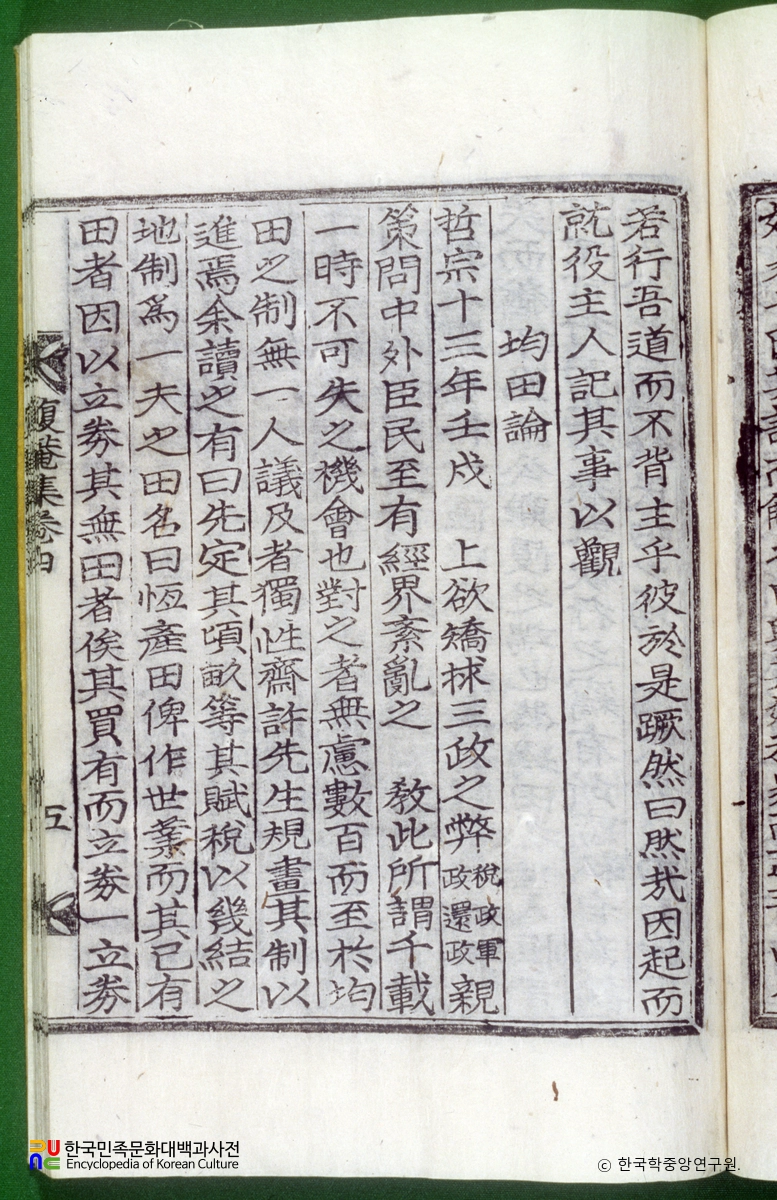 若行吾道而不背主乎彼於是蹶然曰然哉因起而
就役主人記其事以觀
均田論
哲宗十三年壬戌 上欲矯捄三政之弊稅政軍政還政親
策問中外臣民至有經界紊亂之 敎此所謂千載
一時不可失之機會也對之者無慮數百而至於均
田之制無一人議及者獨性齋許先生規畫其制以
進焉余讀之有曰先定其頃畝等其賦稅以幾結之
地制爲一夫之田名曰恆產田俾作世業而其已有
田者因以立券其無田者俟其買有而立券一立券
復菴集卷四
五
한국민족문화대백과사전
Encyclopedia of Korean Culture
© 한국학중앙연구원.